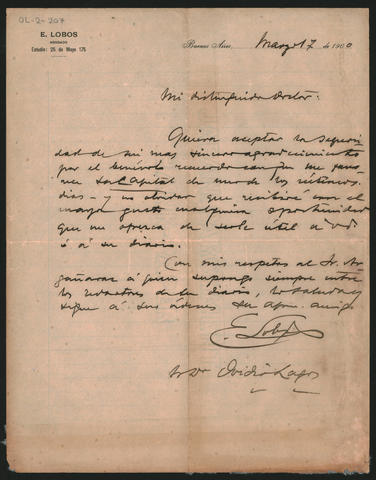 OL-2-207
E. LOBOS
ABOGADO
Estudio: 25 de Mayo 175
Buenos Aires, Mayo 17 de 1900
Mi distinguido Doctor:
Quiera aceptar la seguri-
dad de mi mas sincero agradecimiento
por el benévolo recuerdo con que me
La Capital de uno de los últimos
dias - y no olvidar que recibiré con el
mayor gusto cualquiera oportunidad
que me ofrezca de serle útil a Vd
ó á su diario.
Con mis respetos al Sr. Ar-
gañaraz á quien supongo siempre entre
los redactores de su diario, lo saluda y
sigue á sus órdenes su afmo. amigo
E. Lobos
Sr Dr Ovidio Lagos